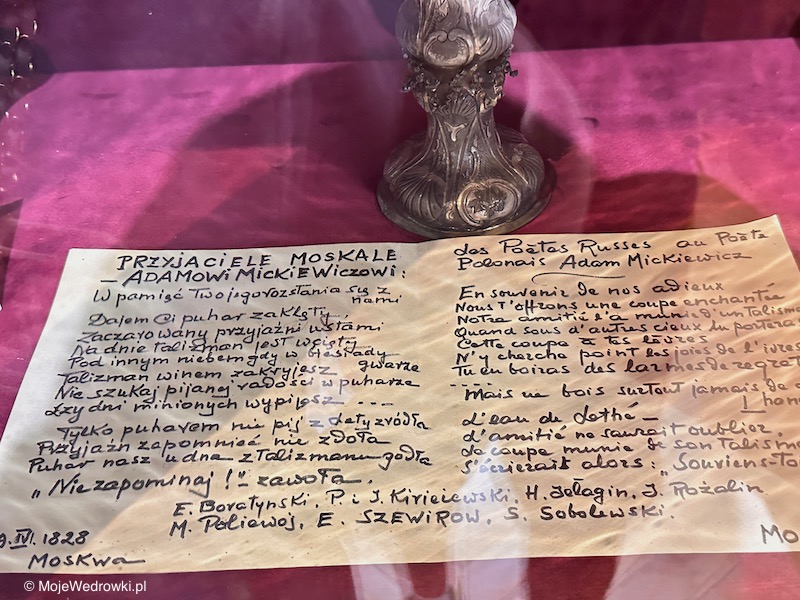 PRZYJACIELE MOSKALE
– ADAMOWI MICKIEWICZOWI:
W pamięć Twojego rozstania się z
nami
Dajem Ci puhar zaklęty,
Zaczarowany przyjaźni ustami
Na dnie talizman jest wcięty
Pod innym niebem gdy w biesiady
gwarze
Talizman winem zakryjesz
Nie szukaj pijanej radości w puharze
Łzy dni minionych wypijesz – – –
Tylko puharem nie pij z Lety źródła
Przyjaźń zapomnieć nie zdoła
Puhar nasz u dna z talizmanu godła
„Nie zapominaj!" – zawoła.
des Poëtes Russes au Poëte
Polonais Adam Mickiewicz
En souvenir de nos adieux
Nous t'offrons une coupe enchantée
Notre amitié l'a munie d'un talisma
Quand sous d'autres cieux tu porteras
Cette coupe a tes lèvres
N'y cherche point les joies de l'ivres
Tu en boiras des larmes de regret
– – – –
Mais ne bois surtout jamais de
l'eau de Lethe –
L'amitié ne saurait oublier
La coupe munie de son talisma
s'écierait alors: „Souviens-toi
E. Boratynski, P. i J. Kiriejewski, H. Jełagin, J. Rożalin
M. Poliewoj, E. SZEWIROW, S. Sobolewski.
9.IV. 1828
Moskwa
Mo
© MojeWedrowki.pl